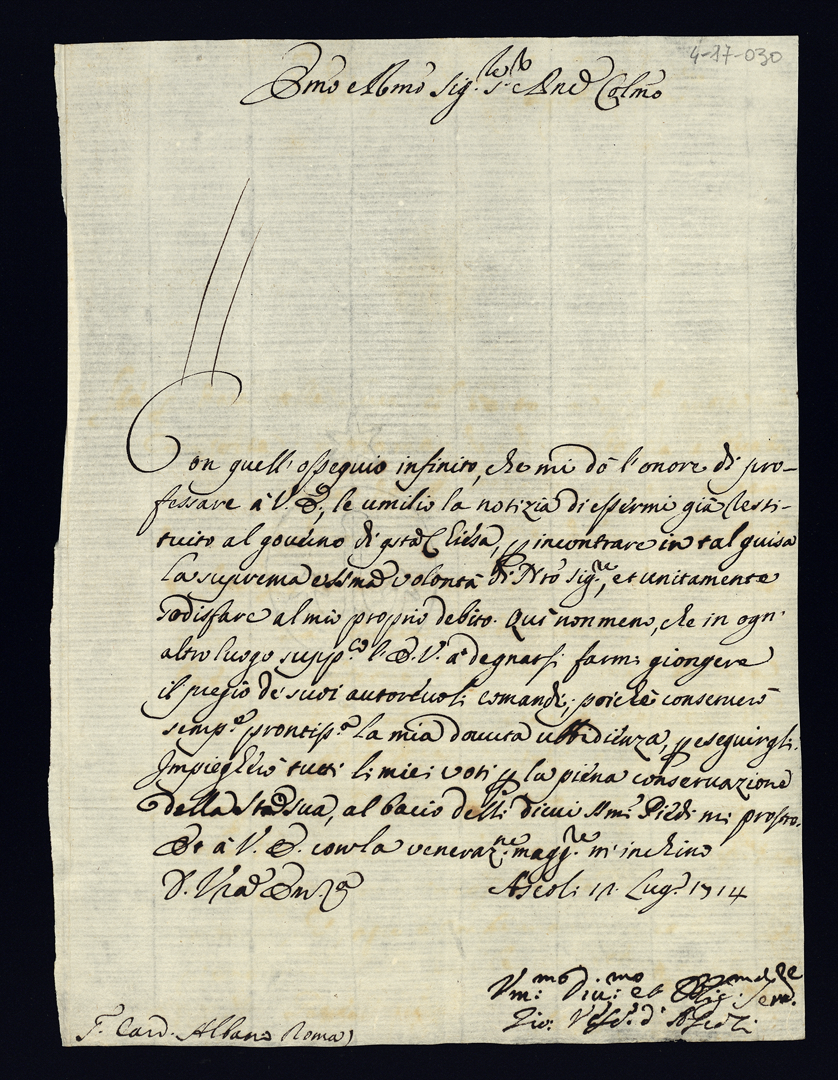 4-17-030
Emo e Rmo Sig.re S.r e Pnē Colmo
Con quell'ossequio infinito, che mi dà l'onore di pro-
fessare à V. E., le umilio la notizia di essermi già resti-
tuito al governo di qsta Chiesa, p incontrare in tal guisa
la suprema e Ssma volontà di Nro Sig.re, et unitamente
sodisfare al mio proprio debito. Quì non meno, che in ogn'
altro luogo supp.co l'E.V. a degnarsi farmi giongere
il pregio de suoi autorevoli comandi; poiche conserverò
semp.e prontiss.a la mia dovuta ubbidienza, p eseguirgli.
Impiegherò tutti li miei voti p la piena conservazione
della Sua, al bacio delli di cui Smi Piedi mi prostro.
Et à V. E. con la veneraz.ne magg.re m'inchino
D. Vrã Emza
Ascoli 11. Lug.o 1714
Vm:mo Div:mo et Oblig: Serv.re
Gio. Vesc.o d'Ascoli
S. Card. Albano Roma)